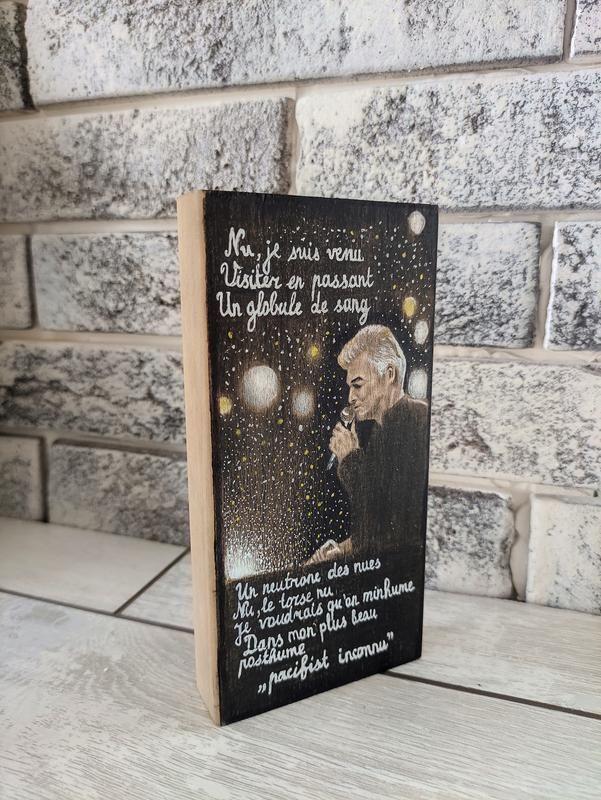 Nu, je suis venu
Visiter en passant
Un globule de sang
Un neutrone des nues
Nu, le torse nu
Je voudrais qu'on minhume
Dans mon plus beau
posthume
„pacifist inconnu”